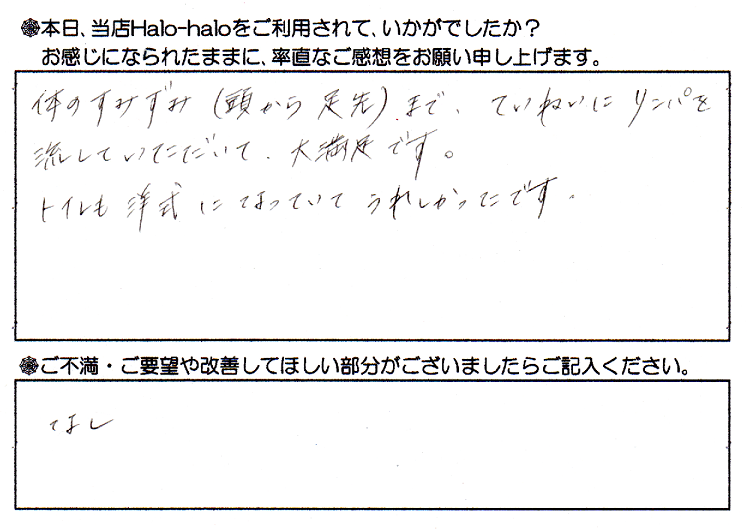 ●本日、当店Halo-haloをご利用されて、いかがでしたか？
お感じになられたままに、率直なご感想をお願い申し上げます。
体のすみずみ(頭から足先)まで、ていねいにリンパを
流していただいて、大満足です。
トイレも洋式になっていてうれしかったです。
●ご不満・ご要望や改善してほしい部分がございましたらご記入ください。
なし